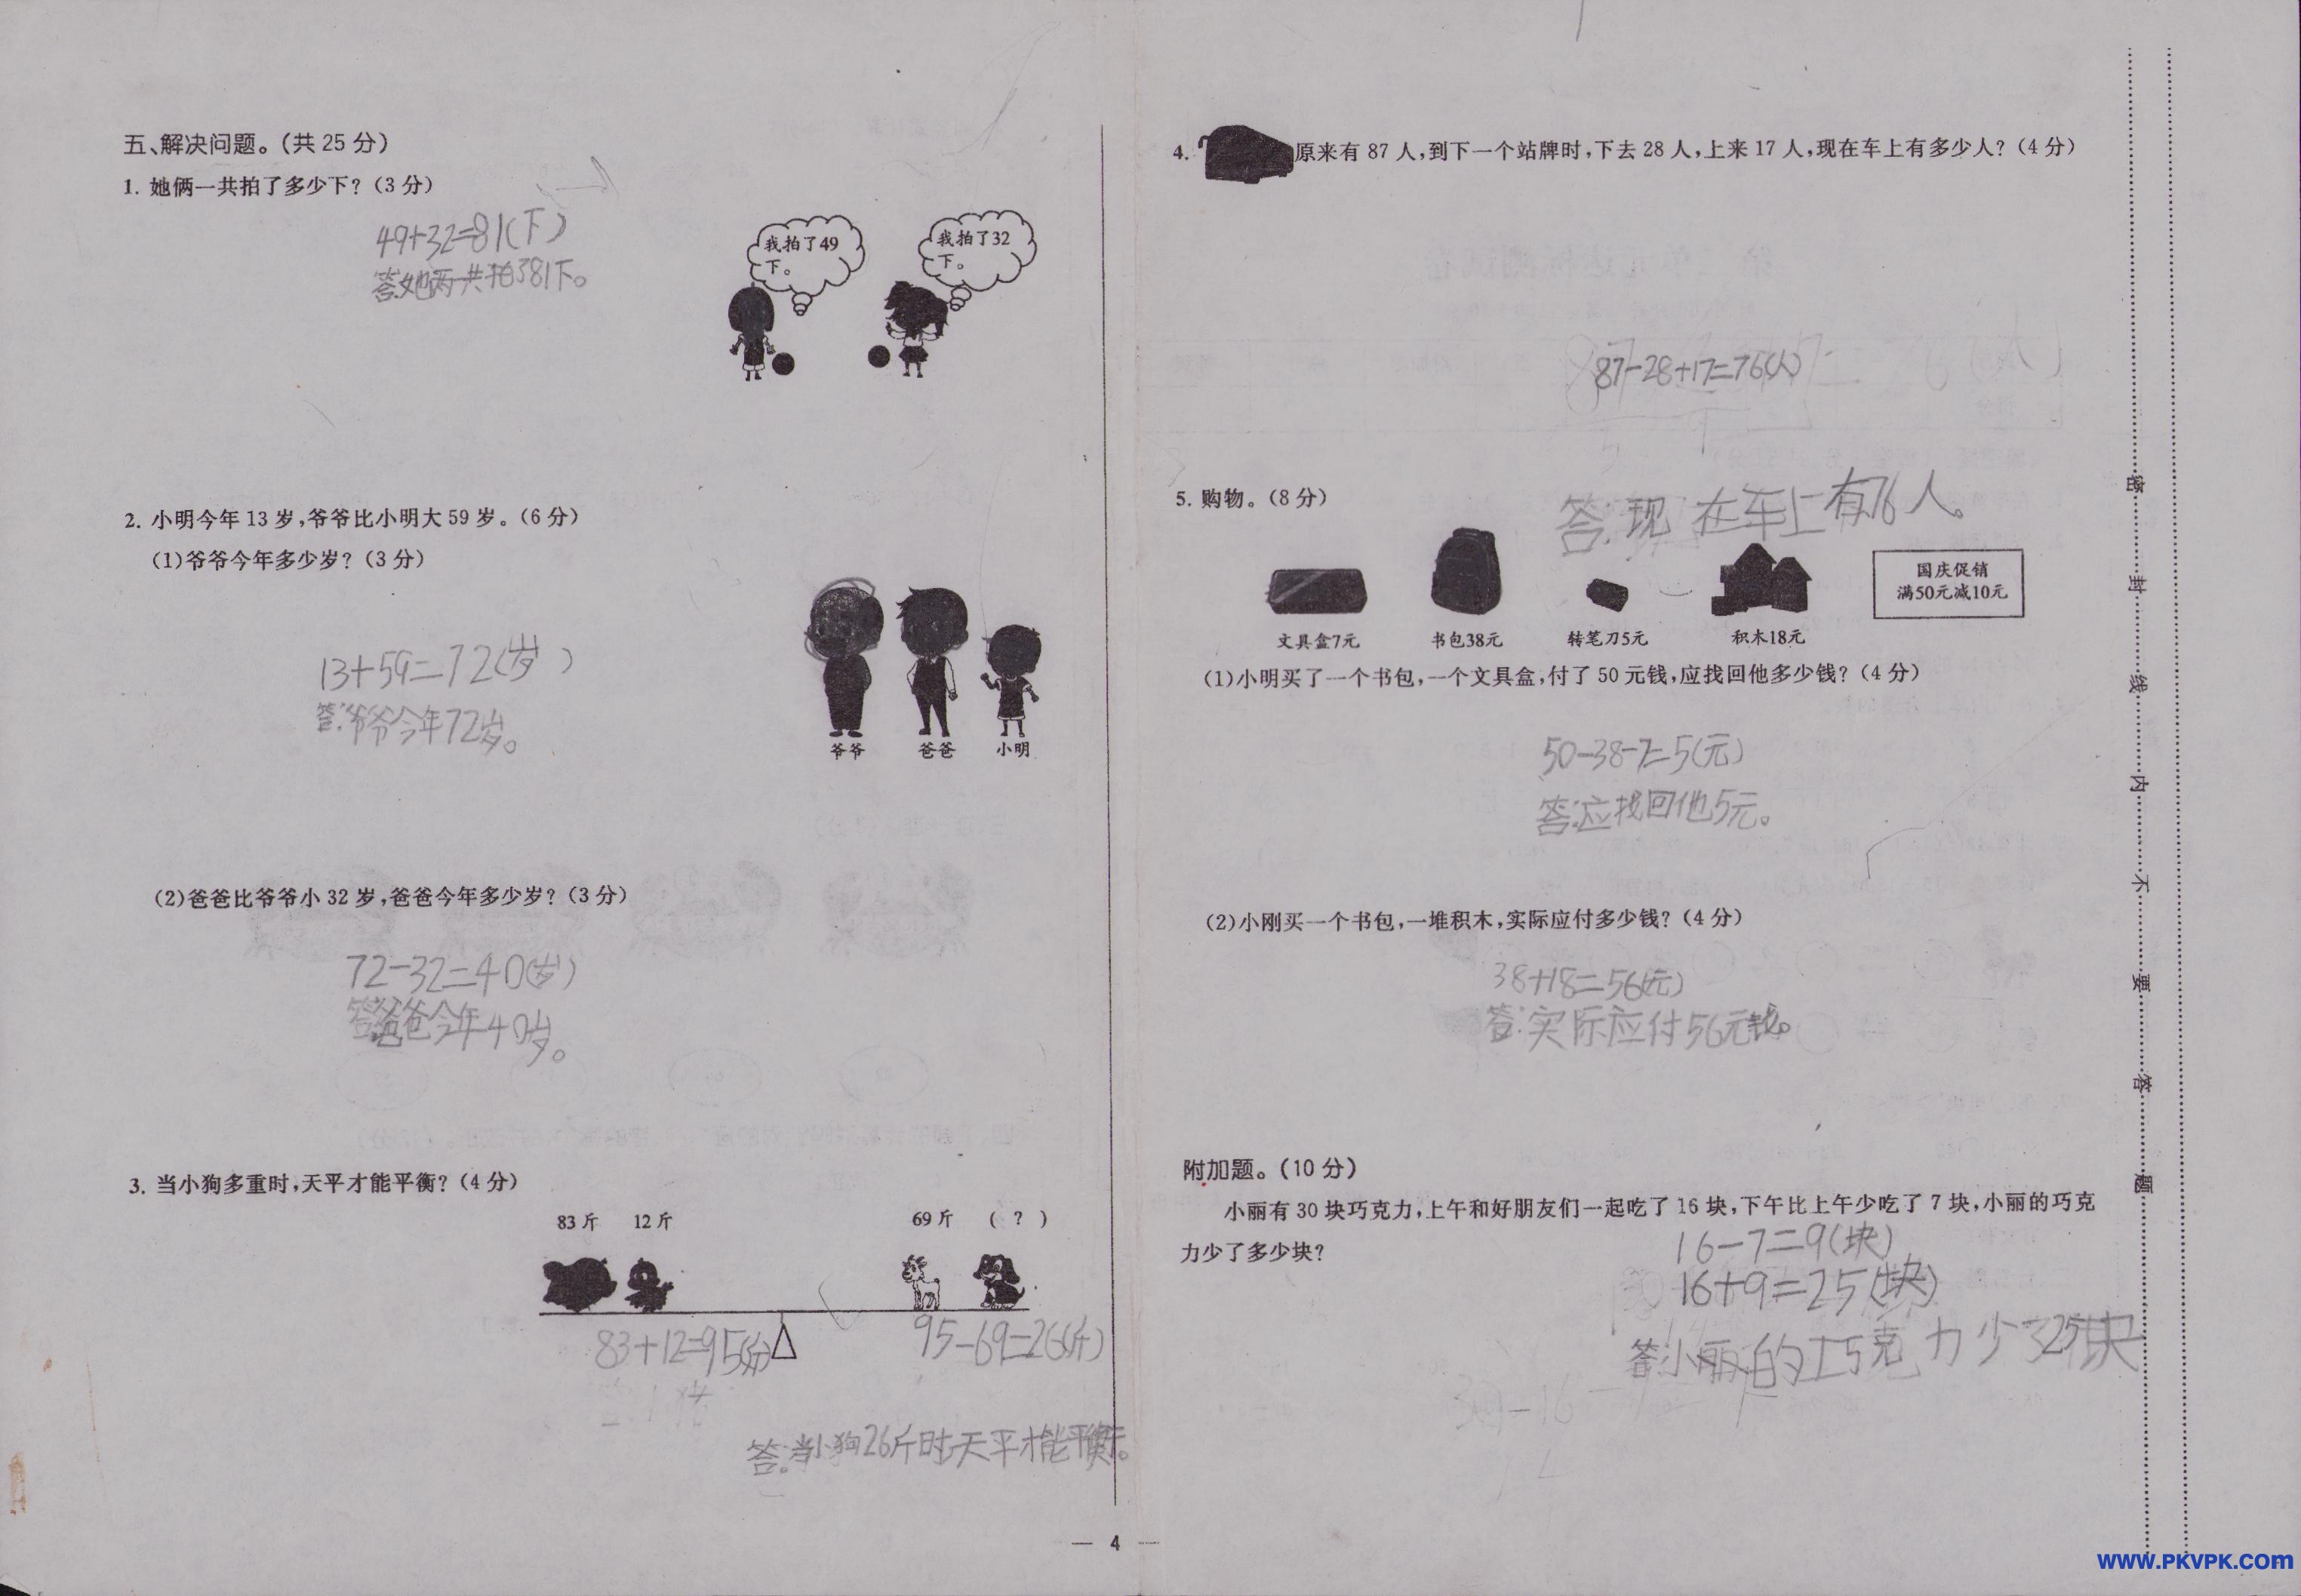 五、解决问题。（共 25 分）
1. 她俩一共拍了多少下？（3 分）
49+32=81(下)
答:她两一共拍了81下。
我拍了49
下。
我拍了32
下。
2. 小明今年 13 岁，爷爷比小明大 59 岁。（6 分）
（1）爷爷今年多少岁？（3 分）
13+59=72(岁)
答:爷爷今年72岁。
爷爷 爸爸 小明
（2）爸爸比爷爷小 32 岁，爸爸今年多少岁？（3 分）
72-32=40(岁)
答:爸爸今年40岁。
3. 当小狗多重时，天平才能平衡？（4 分）
83 斤 12 斤 69 斤 （ ？ ）
83+12=95(斤) 95-69=26(斤)
答:当小狗26斤时,天平才能平衡。
4. 原来有 87 人，到下一个站牌时，下去 28 人，上来 17 人，现在车上有多少人？（4 分）
87-28+17=76(人)
答:现在车上有76人。
5. 购物。（8 分）
国庆促销
满50元减10元
文具盒7元 书包38元 转笔刀5元 积木18元
（1）小明买了一个书包，一个文具盒，付了 50 元钱，应找回他多少钱？（4 分）
50-38-7=5(元)
答:应找回他5元。
（2）小刚买一个书包，一堆积木，实际应付多少钱？（4 分）
38+18=56(元)
答:实际应付56元钱。
附加题。（10 分）
小丽有 30 块巧克力，上午和好朋友们一起吃了 16 块，下午比上午少吃了 7 块，小丽的巧克
力少了多少块？
16-7=9(块)
16+9=25(块)
答:小丽的巧克力少了25块
密 封 线 内 不 要 答 题
— 4 —
www.PKVPK.com